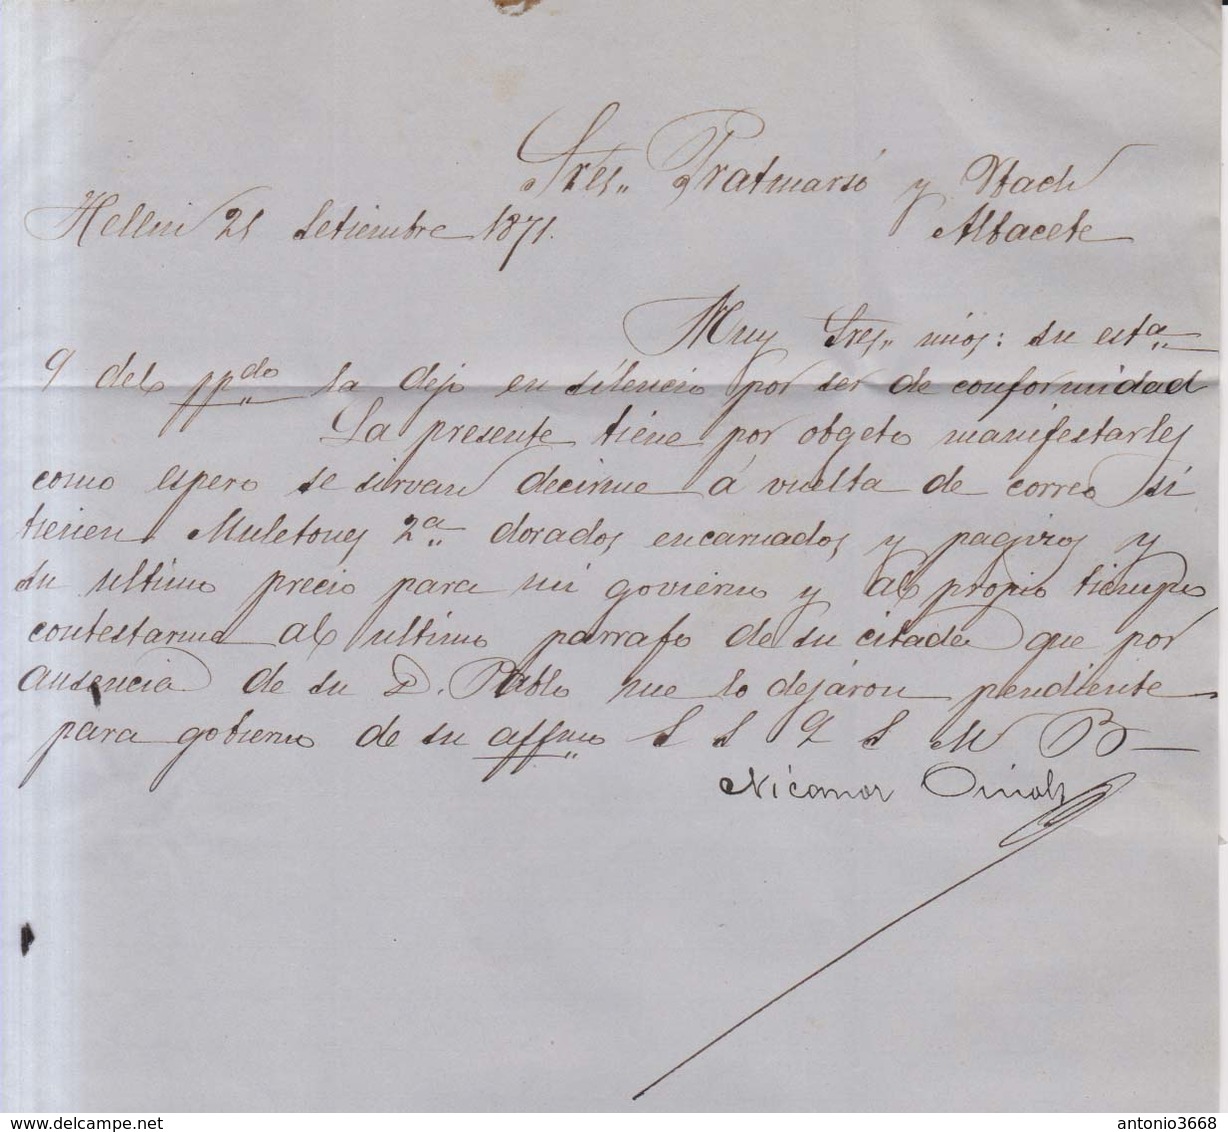 Sres,, Pratmarsó y Stach
Hellin 21 Setiembre 1871.
Albacete
Muy Sres,, mios: su esta,,
9 del ppdo,, la dejo en silencio por ser de conformidad
La presente tiene por obgeto manifestarles
como espero se sirvan decirme á vuelta de correo si
tienen Muletones 2a,, dorados encarnados y pagizos y
su ultimo precio para mi govierno y al propio tiempo
contestarme al ultimo parrafo de su citada que por
ausencia de su D. Pablo me lo dejáron pendiente
para gobierno de su affmo,, S S Q S M B
Nicanor
antonio3668